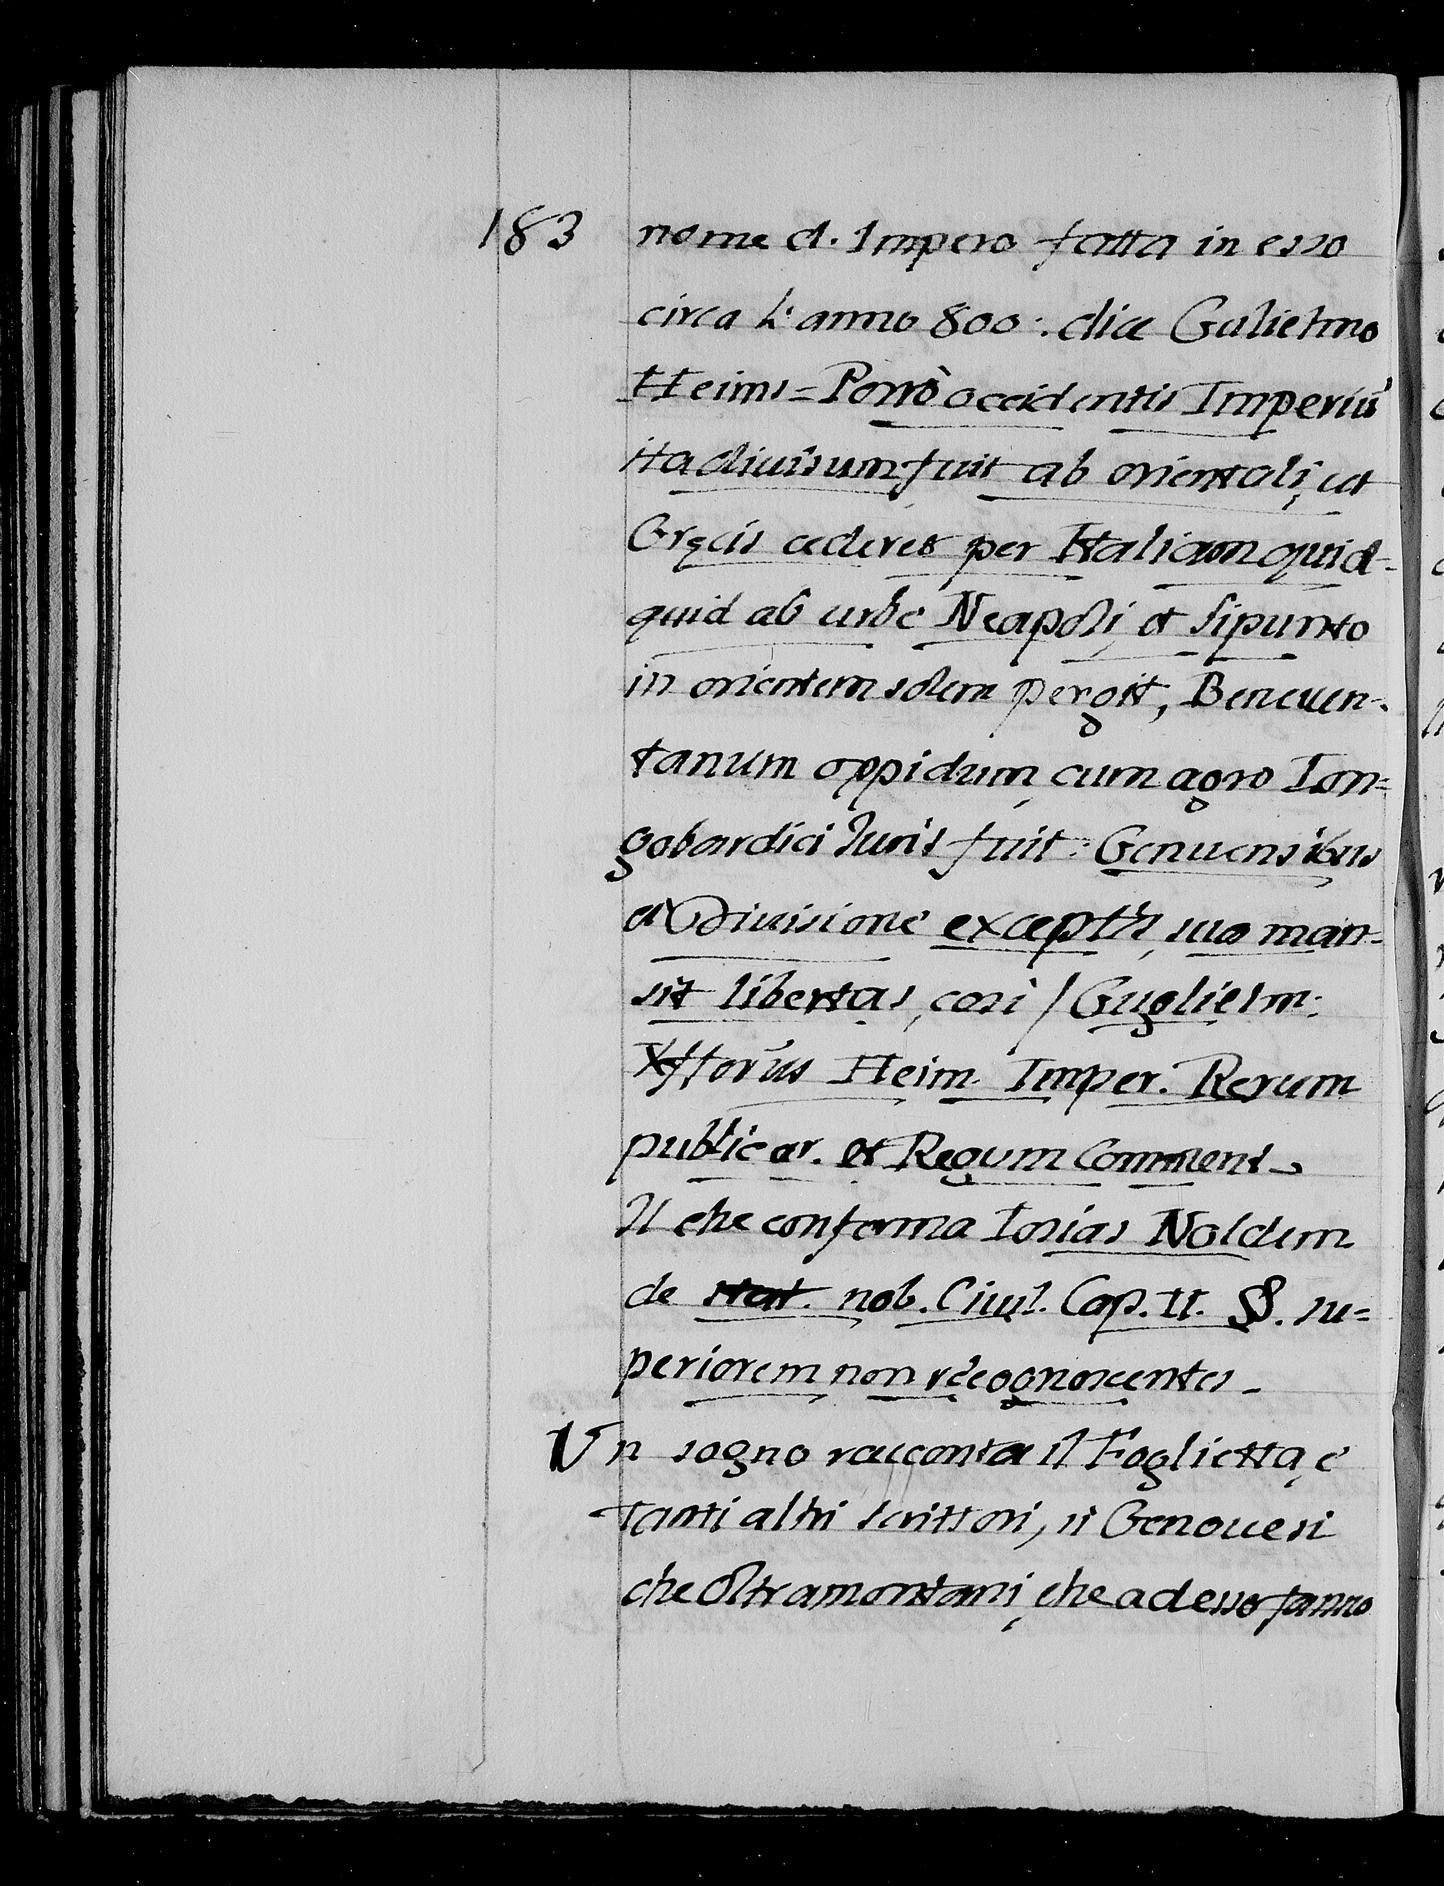 183 nome d. Impero fatta in esso
circa l'anno 800: dice Gulielmo
Heims = Porrò occidentis Imperiũ
ita diuisum fuit ab orientali, ut
Gręcis cederet per Italiam quid-
quid ab urbe Neapoli, et Sipunto
in orientem solem pergit, Beneuen-
tanum oppidum, cum agro Lon=
gobardici Iuris fuit: Genuensibus
a Diuisione exceptis, sua man-
sit libertas, così / Guglielm:
Heim. Imper. Rerum
publicar. et Regum Comment.
Il che conferma Iosias Noldem
de stat. nob. Ciuil. Cap. II. §8. su=
periorem non recognoscentes.
Un sogno racconta il Foglietta, e
tanti altri scrittori, sì Genouesi
che Oltramontani, che adesso fanno